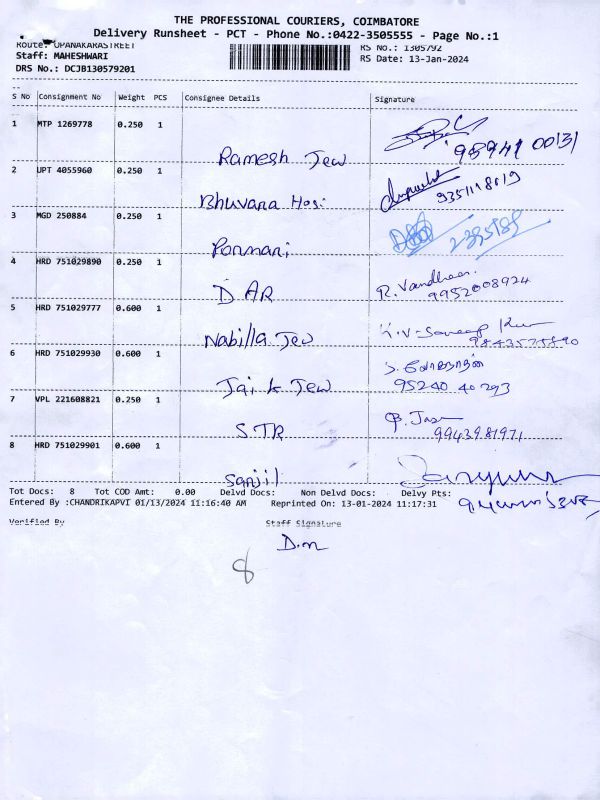 THE PROFESSIONAL COURIERS, COIMBATORE
Delivery Runsheet - PCT - Phone No.:0422-3505555 - Page No.:1
Route: OPANAKARASTREET RS No.: 1305792
Staff: MAHESHWARI RS Date: 13-Jan-2024
DRS No.: DCJB130579201
S No Consignment No Weight PCS Consignee Details Signature
1 MTP 1269778 0.250 1
Ramesh Jew
2 UPT 4055960 0.250 1
Bhuvana Hosi
3 MGD 250884 0.250 1
Pormani
4 HRD 751029890 0.250 1 R. Vandhana
DAR 9952008924
5 HRD 751029777 0.600 1
Nabilla Jew
6 HRD 751029930 0.600 1
Jai k Jew 95240 40293
7 VPL 221608821 0.250 1
STR 9943981971
8 HRD 751029901 0.600 1
Sanjil
Tot Docs: 8 Tot COD Amt: 0.00 Delvd Docs: Non Delvd Docs: Delvy Pts:
Entered By :CHANDRIKAPVI 01/13/2024 11:16:40 AM Reprinted On: 13-01-2024 11:17:31
Verified By Staff Signature
D.m
8